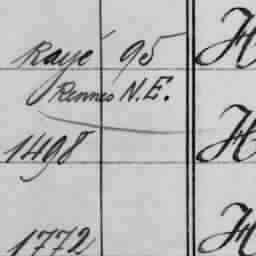 Rayé 95 H
Rennes N.E.
1498 H
1772 H